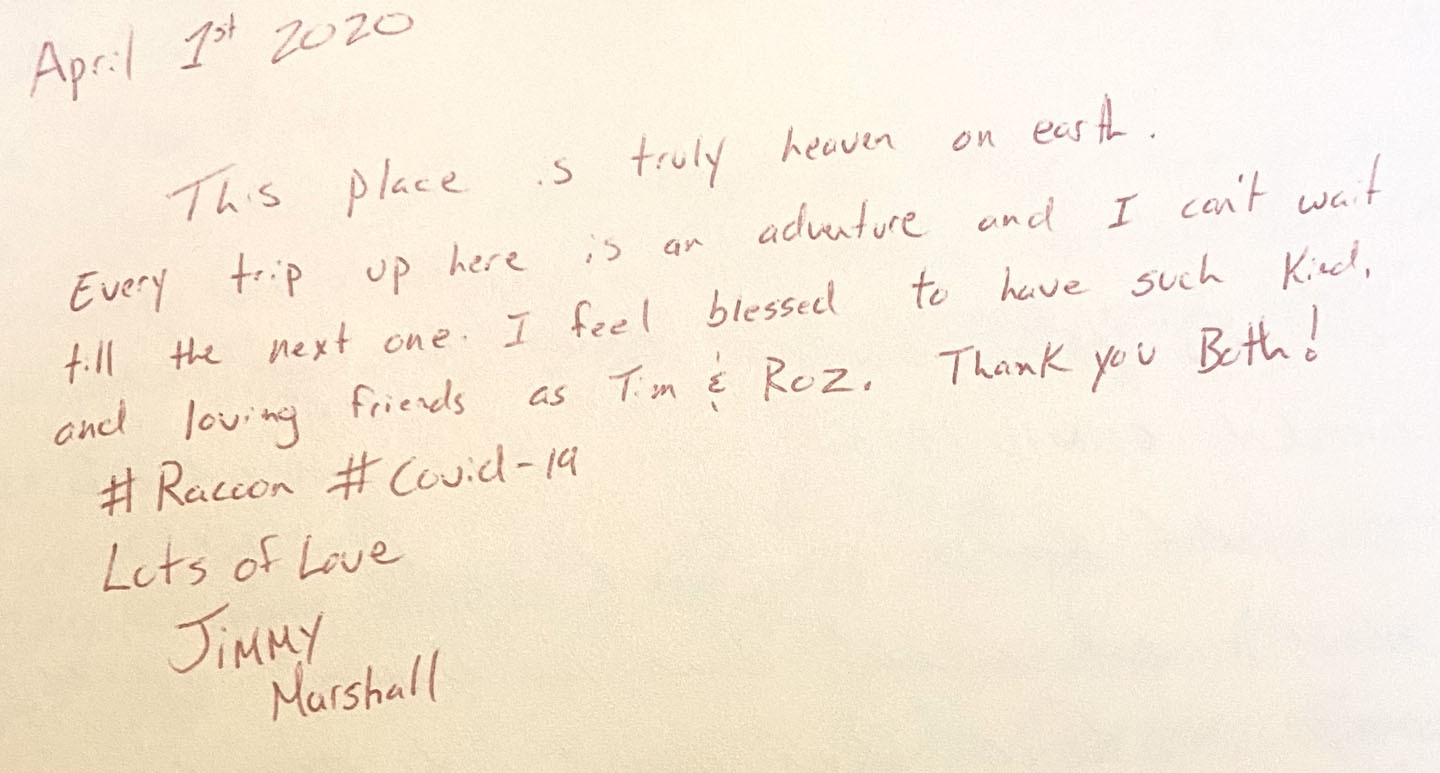 April 1st 2020
This place is truly heaven on earth.
Every trip up here is an adventure and I can't wait
till the next one. I feel blessed to have such Kind,
and loving friends as Tim & Roz. Thank you Both!
# Raccoon # Covid-19
Lots of Love
JiMMY
Marshall